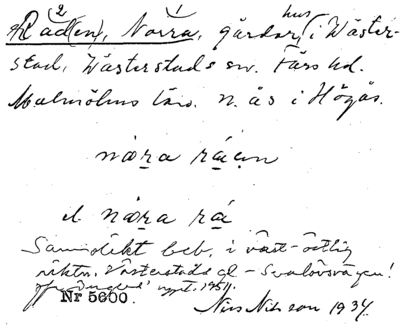 2 1
Rad(en), Norra, gårdar, hus i Wäster-
stad, Wästerstads sn. Färs hd.
Malmöhus län. n. ås i Högås.
nǫra råan
el nǫra rå
Samdikt beb. i väst-östlig
riktn. Västerstads gl - Svalövsvägen!
uppt. 1951.
Nr 5600.
Nils Nilsson 1934.